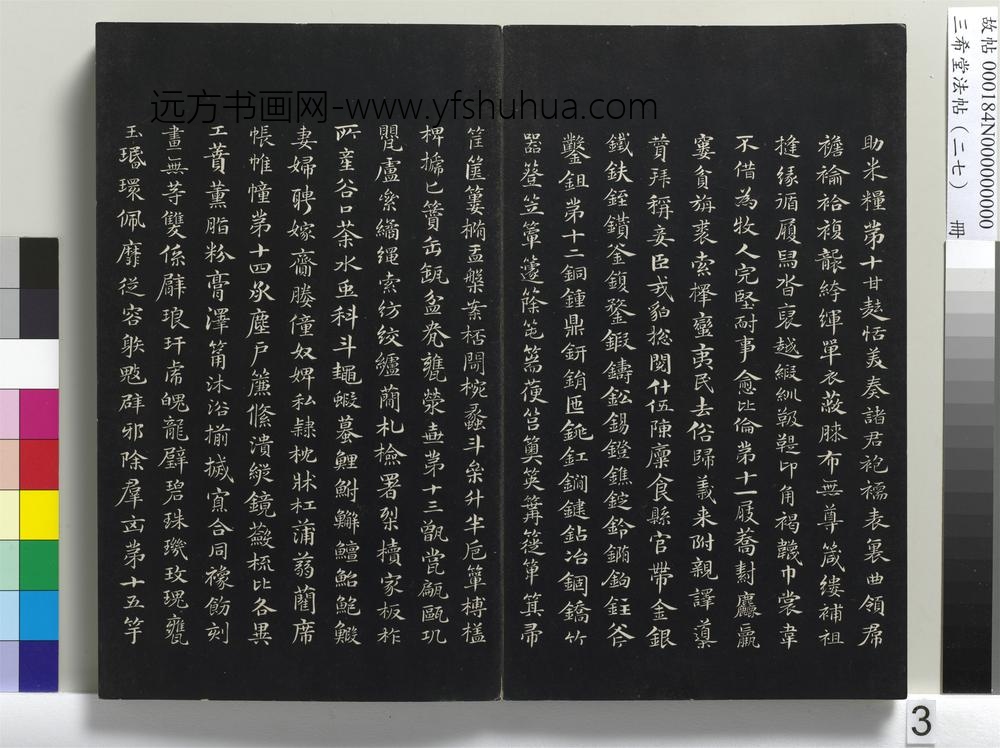 助米糧第十甘麩恬美奏諸君袍襦表裏曲領帬
襜褕袷複襲絝緷單衣蔽膝布無尊箴縷補袒
揵緣循履舄沓裒越緞紃靸鞮卬角褐韤巾裳韋
不借為牧人完堅耐事愈比倫第十一屐蕎麤羸
窶貧旃裘索擇蠻夷民去俗歸義来附親譯導
賛拜稱妾臣戎貊総閱什伍陳廩食縣官帶金銀
鐵鈇銍鑽釜鍑鍪鍛鑄鈆錫鐙鐎錠鈴鐗鉤鈺斧
鑿鉏第十二銅鍾鼎鈃鋗匜銚釭鐗鍵鉆冶錮鐈竹
器簦笠簟籧篨筥篇䈰筥籅筴篝筵箪箕帚
筐篋簍橢盂槃案桮閜椀蠡斗朵升半卮箪榑榼
椑㯕匕籫缶缻盆㽀甕罃壺第十三甑瓽甂甌㼚
甖盧絫繘繩索紡絞纑蕳札檢署槧櫝家板柞
所産谷口茶水虫科斗蠅蝦蟇鯉鮒鱓鱣鮐鮑鰕
妻婦聘嫁齎媵僮奴婢私隸枕牀杠蒲蒻藺席
帳帷幢第十四承塵戸簾絛潰縱鏡籨梳比各異
工蕡薰脂粉膏澤筩沐浴揃搣寡合同襐飭刻
畫無等雙係臂琅玕虎魄龍璧碧珠璣玫瑰甕
玉瑉環佩靡從容躲魃辟邪除羣凶第十五竽
远方书画网-www.yfshuhua.com
故帖 000184N000000000
三希堂法帖（二七） 冊
3